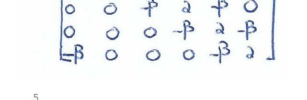 0 0 -β 2 -β 0
0 0 0 -β 2 -β
-β 0 0 0 -β 2
5